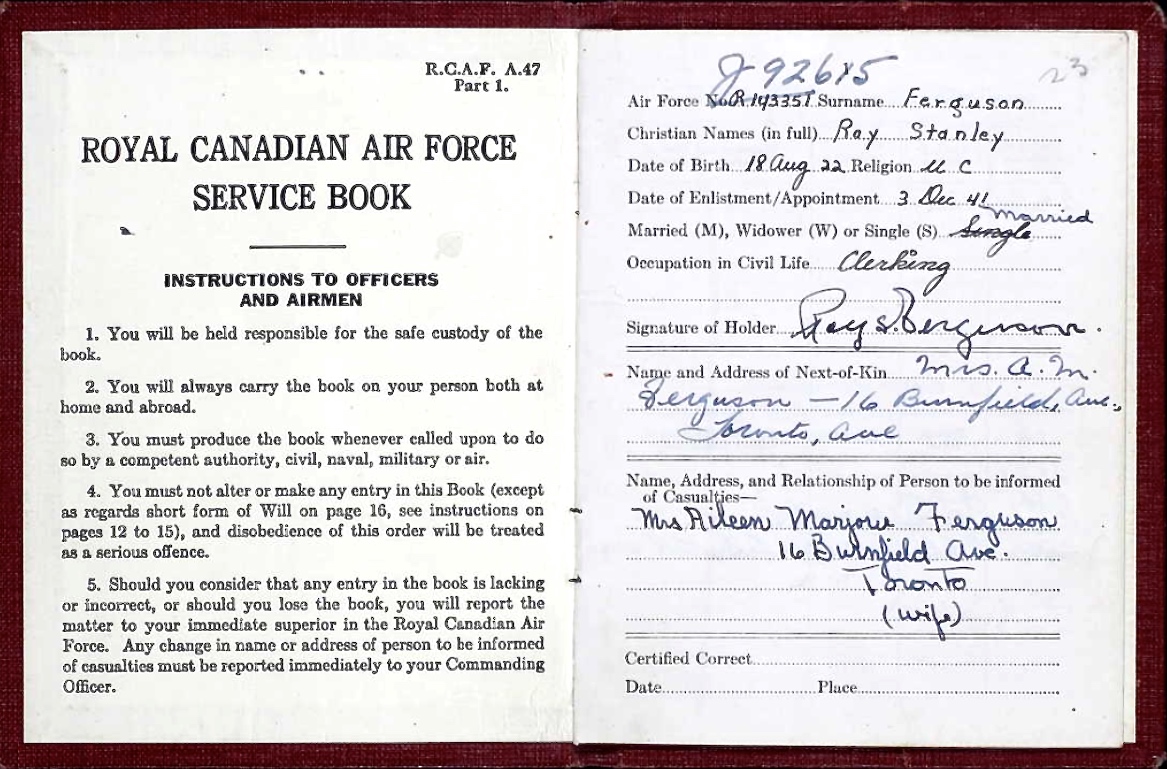 R.C.A.F. A.47
Part 1.
ROYAL CANADIAN AIR FORCE
SERVICE BOOK
INSTRUCTIONS TO OFFICERS
AND AIRMEN
1. You will be held responsible for the safe custody of the
book.
2. You will always carry the book on your person both at
home and abroad.
3. You must produce the book whenever called upon to do
so by a competent authority, civil, naval, military or air.
4. You must not alter or make any entry in this Book (except
as regards short form of Will on page 16, see instructions on
pages 12 to 15), and disobedience of this order will be treated
as a serious offence.
5. Should you consider that any entry in the book is lacking
or incorrect, or should you lose the book, you will report the
matter to your immediate superior in the Royal Canadian Air
Force. Any change in name or address of person to be informed
of casualties must be reported immediately to your Commanding
Officer.
23
J92615
Air Force No R.143351 Surname Ferguson
Christian Names (in full) Ray Stanley
Date of Birth 18 Aug 22 Religion U C
Date of Enlistment/Appointment 3 Dec 41
Married
Married (M), Widower (W) or Single (S) Single
Occupation in Civil Life Clerking
Signature of Holder Ray S. Ferguson.
Name and Address of Next-of-Kin Mrs. A. M.
Ferguson — 16 Burnfield, Ave.,
Toronto, Ave
Name, Address, and Relationship of Person to be informed
of Casualties—
Mrs Aileen Marjorie Ferguson
16 Burnfield Ave.
Toronto
(wife)
Certified Correct
Date Place